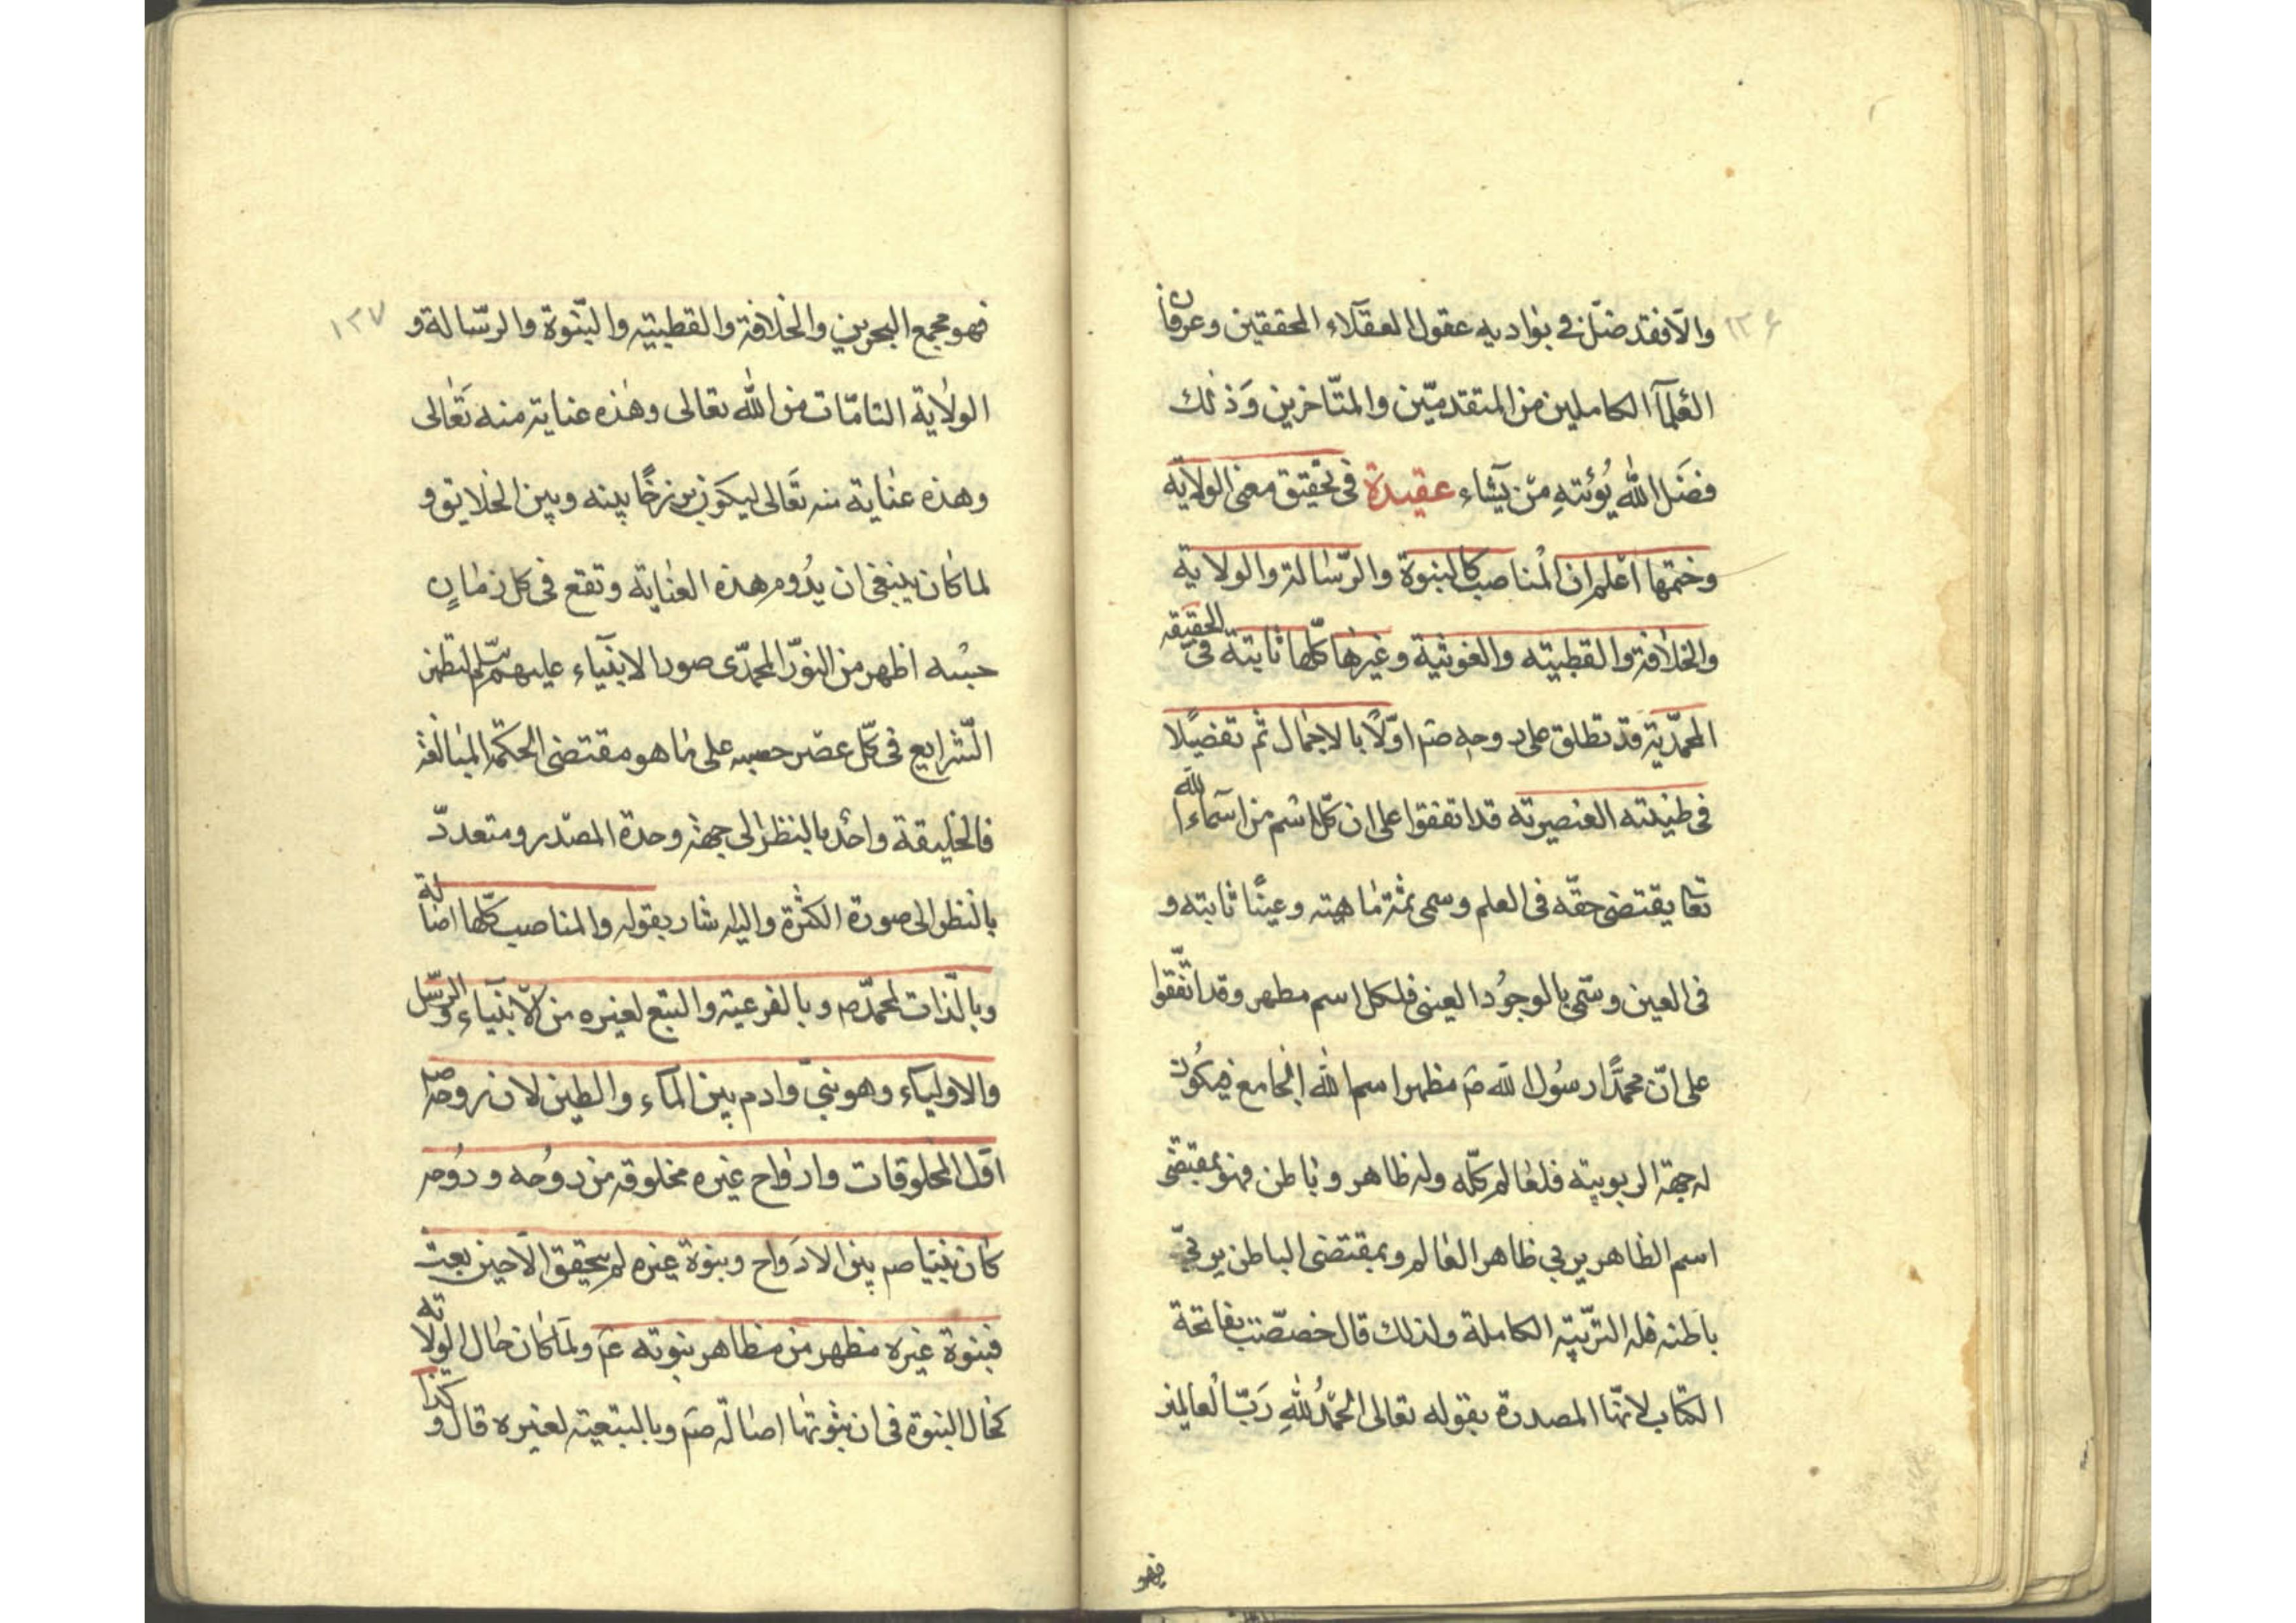 ١٣۶
والّا فقد ضلّ في بواديه عقول العقلاء المحققين وعرفان
العُلمآ الكاملين من المتقدمّين والمتّاخرين وَذٰلك
فضَل اللّٰه يُؤتهِ مَن يشآء عقيدة فى تحقيق معنى الولاية
وختمها اعلم ان المناصب كالنبوة والرّسالة والولاية
والخلافة والقطبيته والغوثية وغيرها كلّها ثابتة فى الحقيقة
المحمّدية وقد تطلق على روحه صَم اوّلاً بالاجمال ثم تفضيلًا
فى طينته العنصريته قد اتفقوا على ان كلّ اسم من اسَماء اللّٰه
تعا يقتضى حقّه فى العلم وسمى ثمة ماهيته وعينًا ثابته و
فى العين وسَمّى بالوجوُد العينى فلكل اسم مظهر وقد اتّفقوا
على انّ محمدًّا رسوُل اللّه صَم مظهر اسم اللّٰه الجامع فيكوُن
له جهة الربوبيته فلعالم كلّه وله ظاهر وباطن فهو بمقتضى
اسم الظاهر يربي ظاهر العٰالم وبمقتضى الباطن يربيّ
باطنه فله التربّيته الكاملة ولذلك قال خصصّت بفاتحة
الكتاب لانهّا المصدرة بقوله تعالى الْحَمْدُ لِلّٰهِ رَبّ الْعالمين
فهو
١٣٧
فهو مجمع البحرين والخلافة والقطبيته والنبّوة والرسّالة و
الولاية التامّات من اللّٰه تعالى وهٰذه عناية منه تَعٰالى
وهذه عنٰاية منه تعَالى ليكون برزخًا بينه وبين الخلايق و
لما كان ينبغى ان يدُوم هذه العنٰاية وتقع فى كل زمٰانٍ
حبسه اظهر من النورّ المحمدّى صور الانبيآء عليهم سلّم لتظهر
الشّرايع فى كلّ عصَر حسبه على مٰا هو مقتضى الحكمة البٰالغة
فالخليقة واحد بالنظر الى جهة وحدة المصدر ومتعددّ
بالنظر الى صورة الكثرة واليه اشار بقوله والمناصب كلّها اصٰالة
وبالذّات لمحمدّ صم وبالفرعية والتبّع لغيره من الانبيآء والرسّل
والاوليآء وهو نبيّ وادم بين المآء والطين لان روحه صم
اوّل المخلوقات وارواح غيره مخلوقة من روُحه وروُحه
كان نبيّا صم بين الارَواح وبنوة غيره لم يتحقق الّا حين بعث
فبنوة غيره مظهر من مظاهر بنوته عَم ولَما كان حٰال الولاية
كحٰال النبوة فى ان ثبوتها اصٰالةً له صَم وبالبتعية لغيره قال و كذا